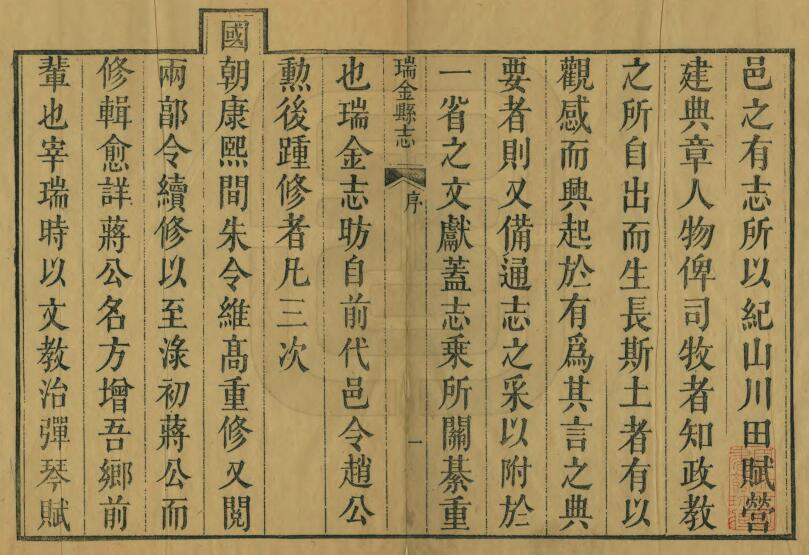 邑之有志所以紀山川田賦營
建典章人物俾司牧者知政教
之所自出而生長斯土者有以
觀感而興起於有爲其言之典
要者則又備通志之采以附於
一省之文獻蓋志乘所關綦重
瑞金縣志 序 一
也瑞金志昉自前代邑令趙公
勲後踵修者凡三次
國朝康熙間朱令維高重修又閱
兩郭令續修以至淥初蔣公而
修輯愈詳蔣公名方增吾鄉前
輩也宰瑞時以文教治彈琴賦